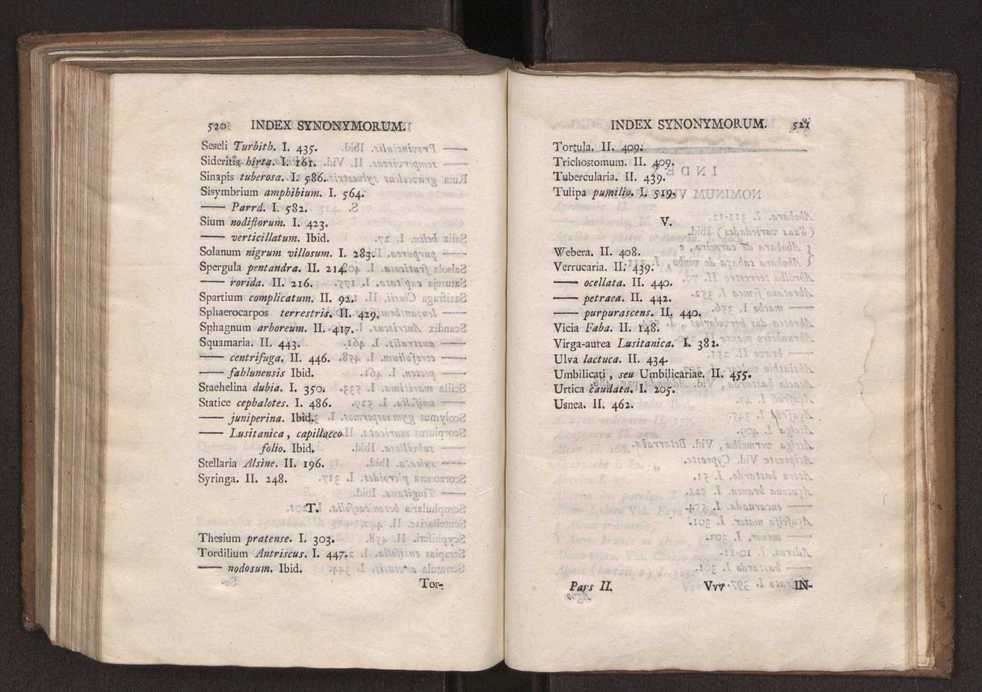 520 INDEX SYNONYMORUM.
Seseli Turbith. I. 435.
Sideritis hirta. I. 181.
Sinapis tuberosa. I. 586.
Sisymbrium amphibium. I. 564.
—— Parrd. I. 582.
Sium nodiflorum. I. 423.
—— verticillatum. Ibid.
Solanum nigrum villosum. I. 283.
Spergula pentandra. II. 214.
—— rorida. II. 216.
Spartium complicatum. II. 92.
Sphaerocarpos terrestris. II. 429.
Sphagnum arboreum. II. 417.
Squamaria. II. 443.
—— centrifuga. II. 446.
—— fahlunensis Ibid.
Staehelina dubia. I. 350.
Statice cephalotes. I. 486.
—— juniperina. Ibid.
—— Lusitanica, capillaceo
folio. Ibid.
Stellaria Alsine. II. 196.
Syringa. II. 248.
T.
Thesium pratense. I. 303.
Tordilium Antriscus. I. 447.
—— nodosum. Ibid.
Tor-
INDEX SYNONYMORUM. 521
Tortula. II. 409.
Trichostomum. II. 409.
Tubercularia. II. 439.
Tulipa pumilio. I. 519.
V.
Webera. II. 408.
Verrucaria. II. 439.
—— ocellata. II. 440.
—— petraea. II. 442.
—— purpurascens. II. 440.
Vicia Faba. II. 148.
Virga-aurea Lusitanica. I. 382.
Ulva lactuca. II. 434.
Umbilicati, seu Umbilicariae. II. 455.
Urtica caudata. I. 205.
Usnea. II. 462.
Pars II. Vvv IN-